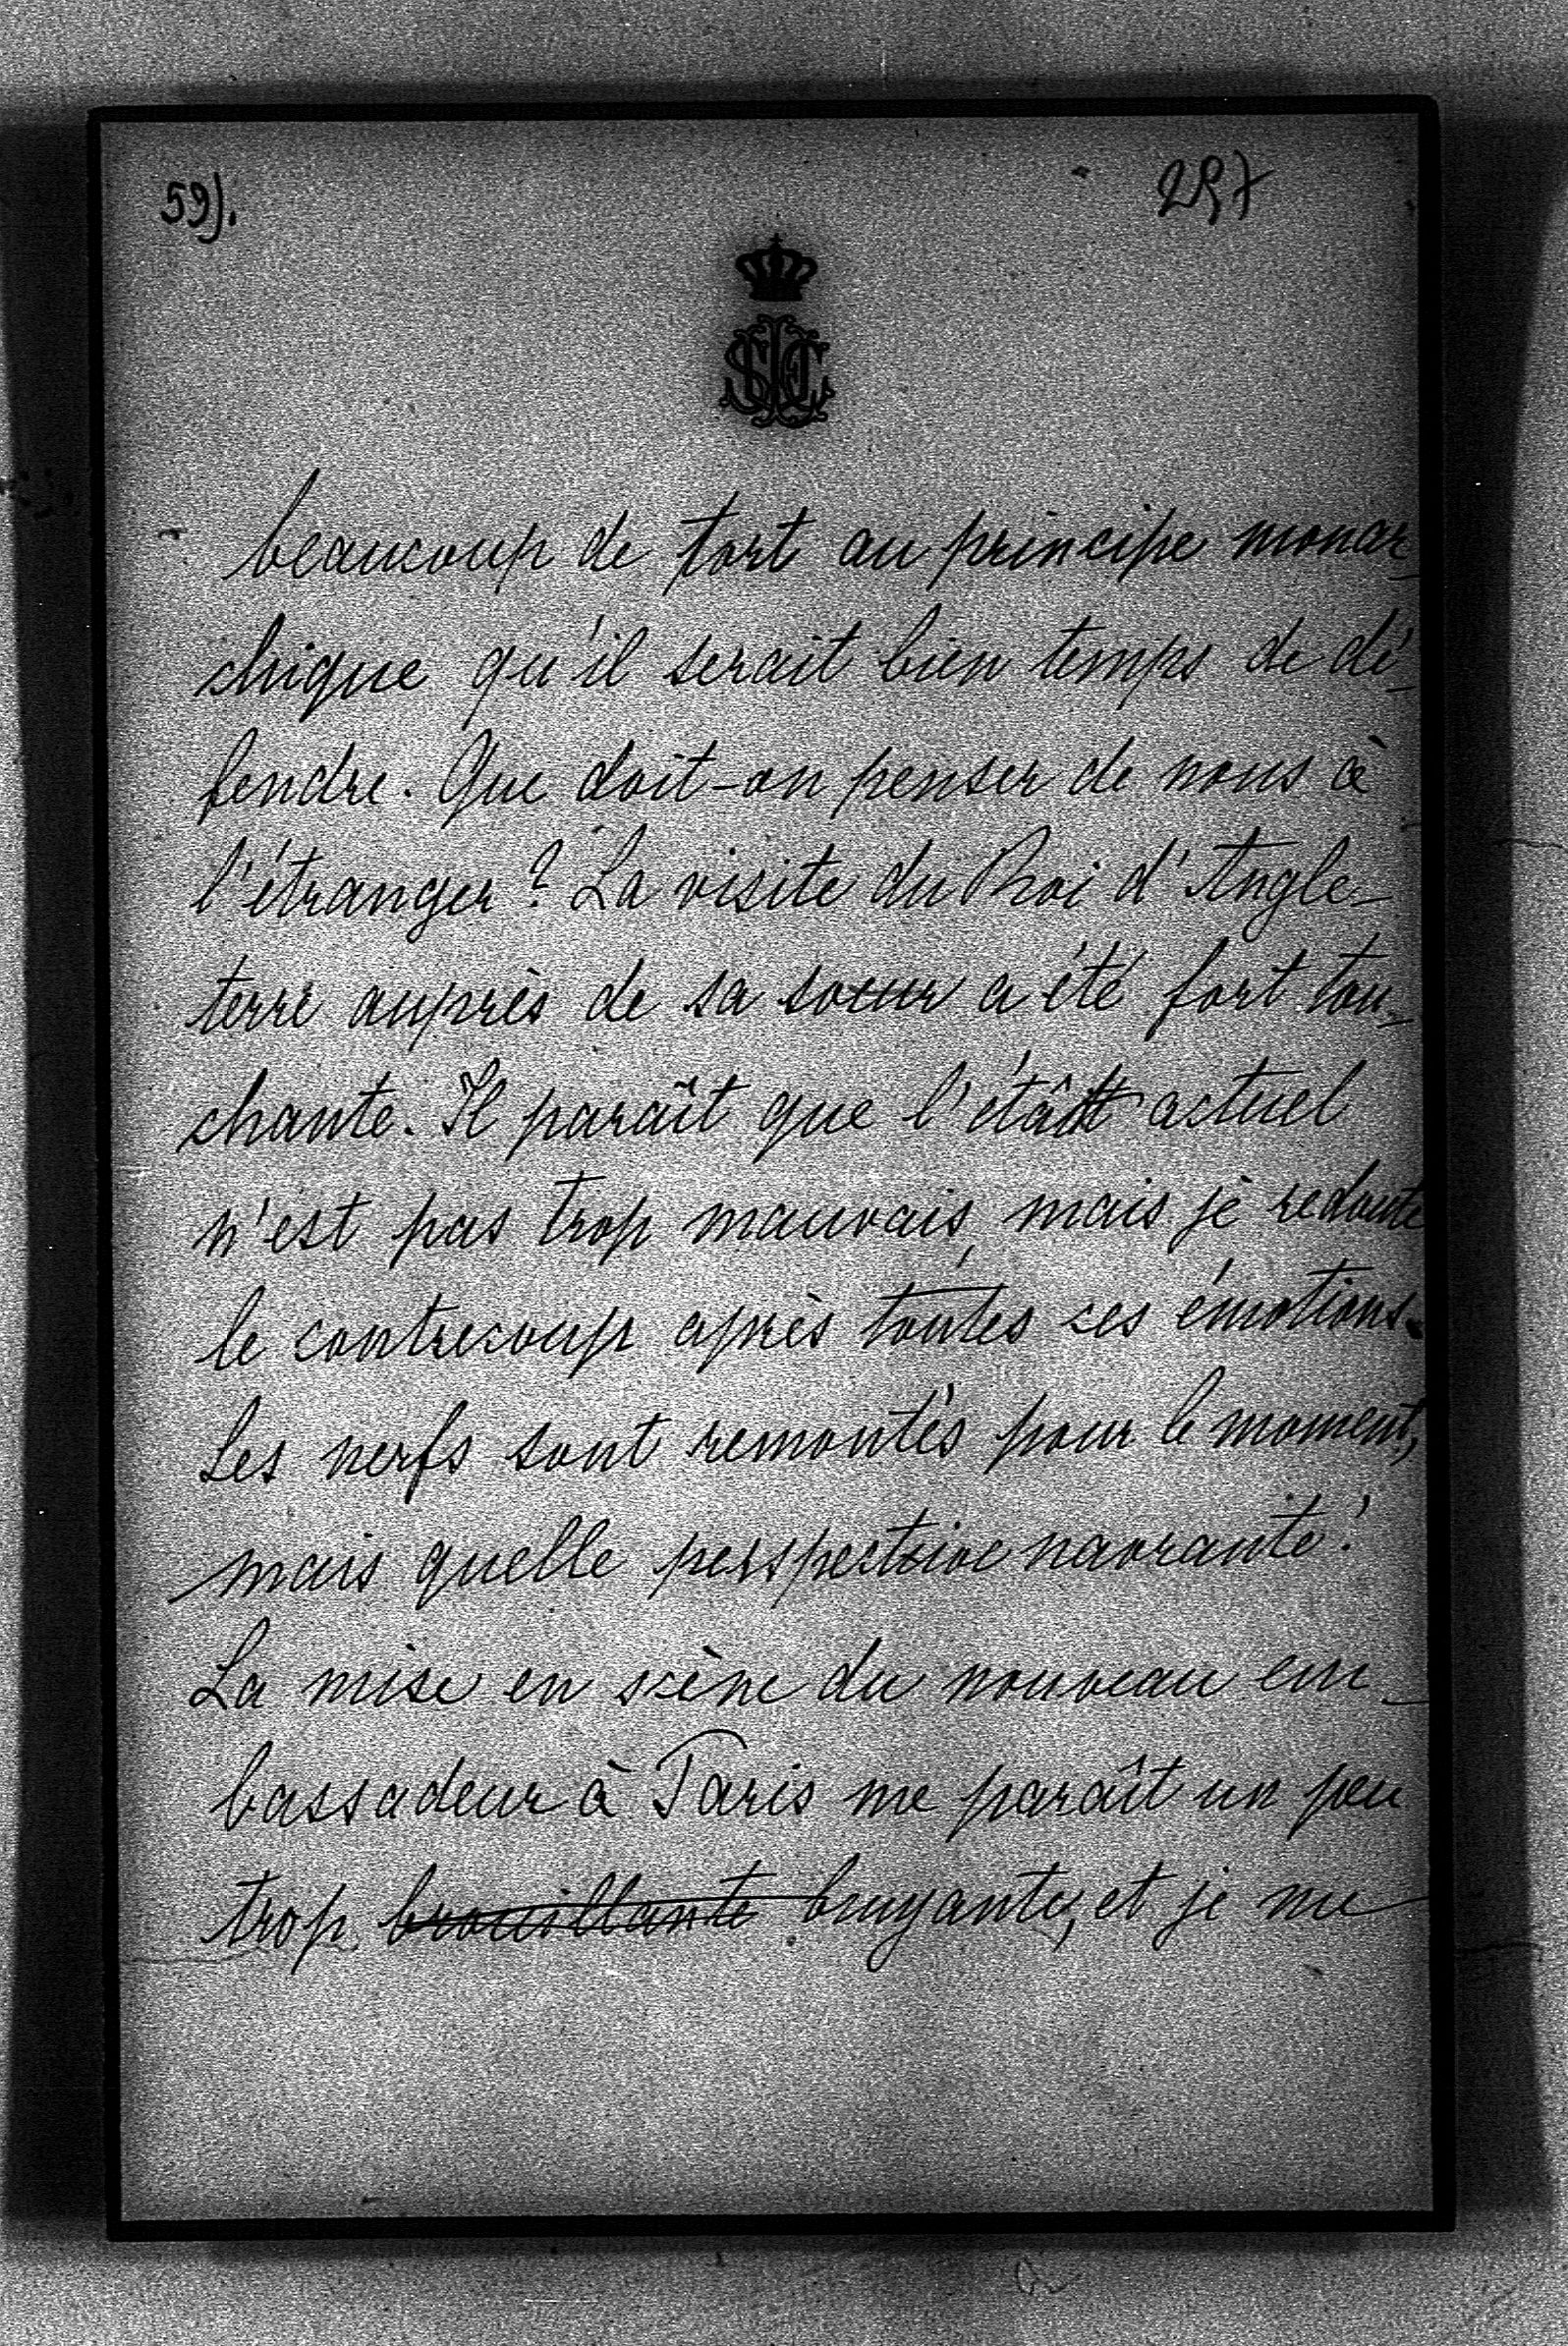 59).
257
beaucoup de tort au principe monar-
chique qu'il serait bien temps de dé-
fendre. Que doit-on penser de nous à
l'étranger? La visite du Roi d'Angle-
terre auprès de sa soeur a été fort tou-
chante. Il paraît que l'état actuel
n'est pas trop mauvais, mais je redoute
le contrecoup après toutes ces émotions.
Les nerfs sont remontés pour le moment,
mais quelle perspective navrante!
La mise en scène du nouveau em-
bassadeur à Paris me paraît un peu
trop brouillante bruyante, et je me